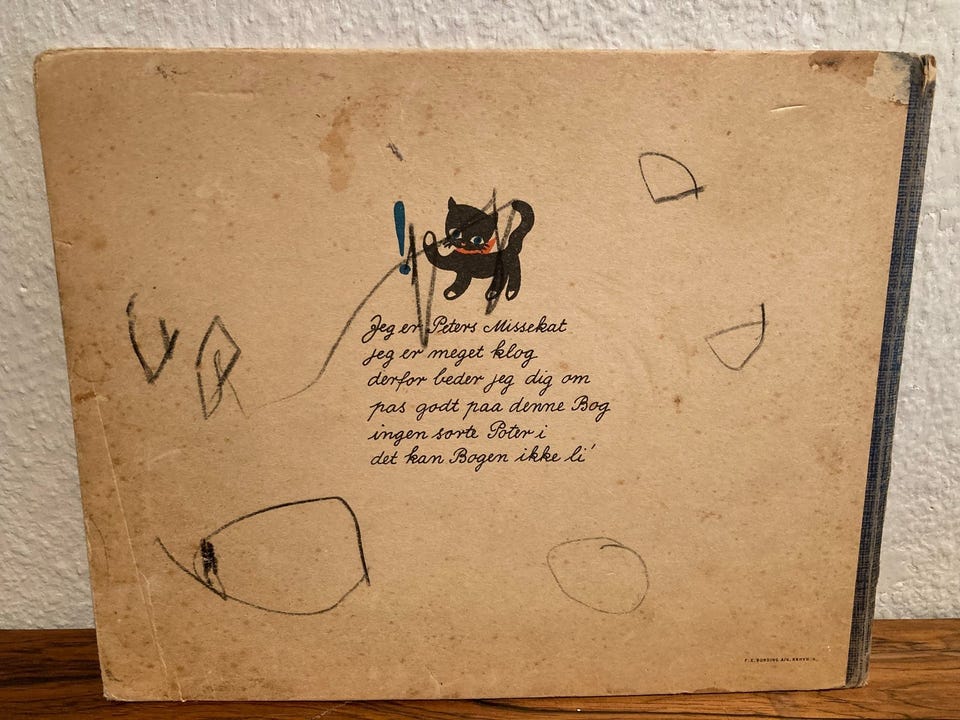 Jeg er Peters Missekat
jeg er meget klog
derfor beder jeg dig om
pas godt paa denne Bog
ingen sorte Poter i
det kan Bogen ikke li'
F. E. BORDING A/S,